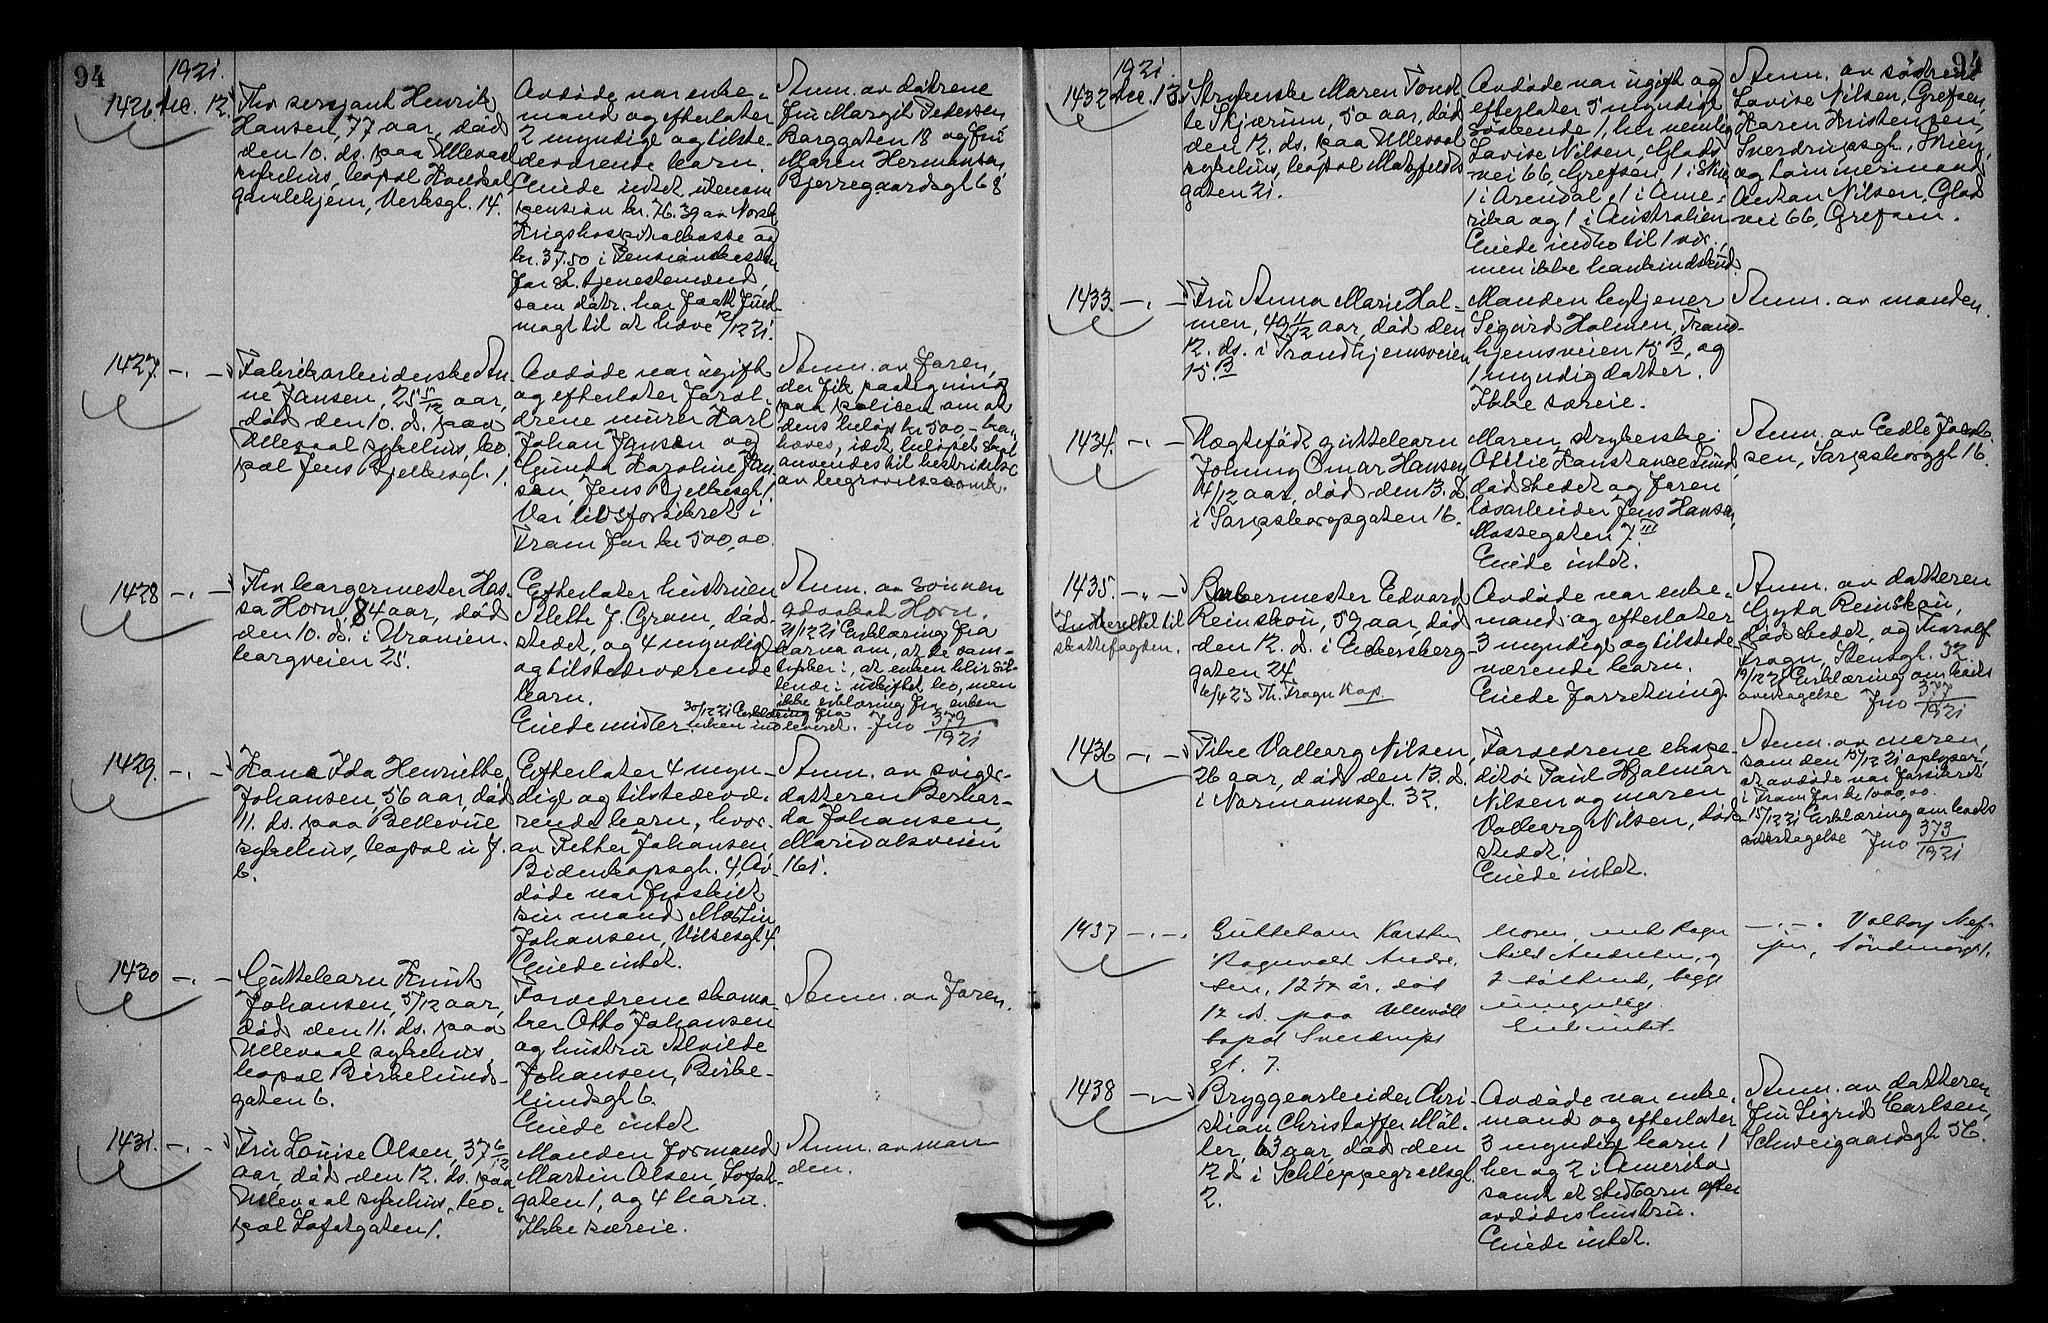 94
1921.
1426. Dec. 12.
Fhv. sersjant Henrik
Hansen, 77 aar, död
den 10. ds. paa Ullevaal
sykehus, bopæl
gamlehjem, Verksgt. 14.
Avdöde var enke-
mand og efterlater
2 myndige og tilste-
deværende barn.
Eiede intet utenom
pension kr. 76.39 av Norsk
Krigshospitalkasse og
kr. 37.50 i Pensionskassen
for St. tjenestemænd,
som datr. har faatt fuld-
magt til at hæve 12/12 21.
Anm. av dötrene
Fru Margit Pedersen,
Borggaten 18 og Fru
Maren Hermansen,
Bjerregaardsgt. 68
1427. -"-
Fabrikarbeiderske An-
ne Jansen, 25 5/12 aar,
död den 10. ds. paa
Ullevaal sykehus, bo-
pæl Jens Bjelkesgt. 1.
Avdöde var ugift
og efterlater foræl-
drene murer Karl
Johan Jansen og
Gunda Karoline Jan-
sen, Jens Bjelkesgt. 1.
Var livsforsikret i
Fram for kr 500,00.
Anm. av faren,
der fik paategning
paa polisen om at
dens belöp kr 500,- kan
hæves, idet belöpet skal
anvendes til bestridelse
av begravelsesomk.
1428 -"-
Fhv. borgermester Has-
sa Horn, 84 aar, död
den 10. ds. i Uranien-
borgveien 25.
Efterlater hustruen
Mette J. Gram, död-
stedet, og 4 myndige
og tilstedeværende
barn.
Eiede midler. 30/12 21 Erklæring fra
enken indleveret.
Anm. av sönnen
advokat Horn.
21/12 21 Erklæring fra
barna om, at de sam-
tykker i, at enken blir sit-
tende i uskiftet bo, men
ikke erklæring fra enken
Jno 379/1921
1429. -"-
Kone Ida Henriette
Johansen, 56 aar, död
11. ds. paa Bellevue
sykehus, bopæl u. f.
b.
Efterlater 4 myn-
dige og tilstedevæ-
rende barn, hvor-
av Petter Johansen
Bidenkapsgt. 4, Av-
döde var fraskilt
sin mand Martin
Johansen, Vibesgt. 4.
Eiede intet.
Anm. av sviger-
datteren Berhar-
da Johansen,
Maridalsveien
161.
1430 -"-
Guttebarn Knut
Johansen, 5/12 aar,
död den 11. ds. paa
Ullevaal sykehus,
bopæl Birkelunds-
gaten 6.
Forældrene skoma-
ker Otto Johansen
og hustru Alvilde
Johansen, Birke-
lundsgt. 6.
Eiede intet
Anm. av faren.
1431. -"-
Fru Louise Olsen, 37 6/12
aar, död den 12. ds. paa
Ullevaal sykehus, bo-
pæl Lofotgaten 1.
Manden formand
Martin Olsen, Lofot-
gaten 1, og 4 barn.
Ikke særeie.
Anm. av man
den.
94
1921.
1432 Dec. 13.
Strykerske Maren Tomi-
te Skjærum, 50 aar, död
den 12. ds. paa Ullevaal
sykehus, bopæl Markveids
gaten 21.
Avdöde var ugift og
efterlater 5 myndige
söskende 1, her nemlig
Lovise Nilsen, Glads
vei 66, Grefsen, 1 i Skien
1 i Arendal, 1 i Ame-
rika og 1 i Australien
Eiede indbo til 1 vær.
men ikke bankindskud
Anm. av söstrene
Lovise Nilsen, Grefsen,
Karen Kristensen,
Sverdrupsgt., Skien,
og tömmermand
Anton Nilsen, Glads
vei 66, Grefsen.
1433. -"-
Fru Anna Marie Hol-
men, 49 11/12 aar, död den
12. ds. i Trondhjemsveien
15. B
Manden bytjener
Sigurd Holmen, Trond-
hjemsveien 15 B, og
1 myndig datter.
Ikke særeie.
Anm. av manden.
1434. -"-
Uegtefödt guttebarn
Johnny Omar Hansen
4/12 aar, död den 13. ds.
i Sarpsborggaten 16.
Moren, strykerske
Otilie Konstance Lund,
dödstedet og faren
løsarbeider Jens Hansen,
Mossegaten 7 III
Eiede intet.
Anm. av Edle Jacob-
sen, Sarpsborggt. 16.
1435. -"-
Indberettet til
skattefogden.
Rørlægermester Edvard
Reinskou, 59 aar, död
den 12. ds. i Eckersberg-
gaten 24.
6/4 23 Th. Frogn Kap.
Avdöde var enke-
mand og efterlater
3 myndige og tilstede-
værende barn.
Eiede forretning.
Anm. av datteren
Gyda Reinskou,
dödstedet, og Thoralf
Frogn, Stensgt. 32.
19/12 21 Erklæring om boets
overtagelse Jno 377/1921
1436 -"-
Pike Valborg Nilsen,
26 aar, död den 13. d.
i Normannsgt. 32.
Forældrene ekspe-
ditör Paul Hjalmar
Nilsen og moren
Valborg Nilsen, död-
stedet.
Eiede intet.
Anm. av moren,
som den 15/12 21 oplyser,
at avdöde var forsikret
i Fram for kr 1000,00.
15/12 21 Erklæring om boets
overtagelse Jno 373/1921
1437 -"-
Guttebarn Karsten
Ragnvald Andre-
sen, 12 år, död
12 ds. paa Ullevåll
bopæl Sverdrups
gt. 7.
Moren, enke Ragn
hild Andresen, og
2 söskend, begge
umyndige.
Eiet intet.
-"- Valborg
, Söndmörsgt.
1438 -"-
Bryggearbeider Chri-
stian Christoffer Möl-
ler, 63 aar, död den
12 ds i Schleppegrellsgt.
2.
Avdöde var enke-
mand og efterlater
3 myndige barn 1
her og 2 i Amerika
samt et stedbarn efter
avdödes hustru.
Eiede intet.
Anm. av datteren
Fru Sigrid Carlsen,
Schweigaardsgt. 56.